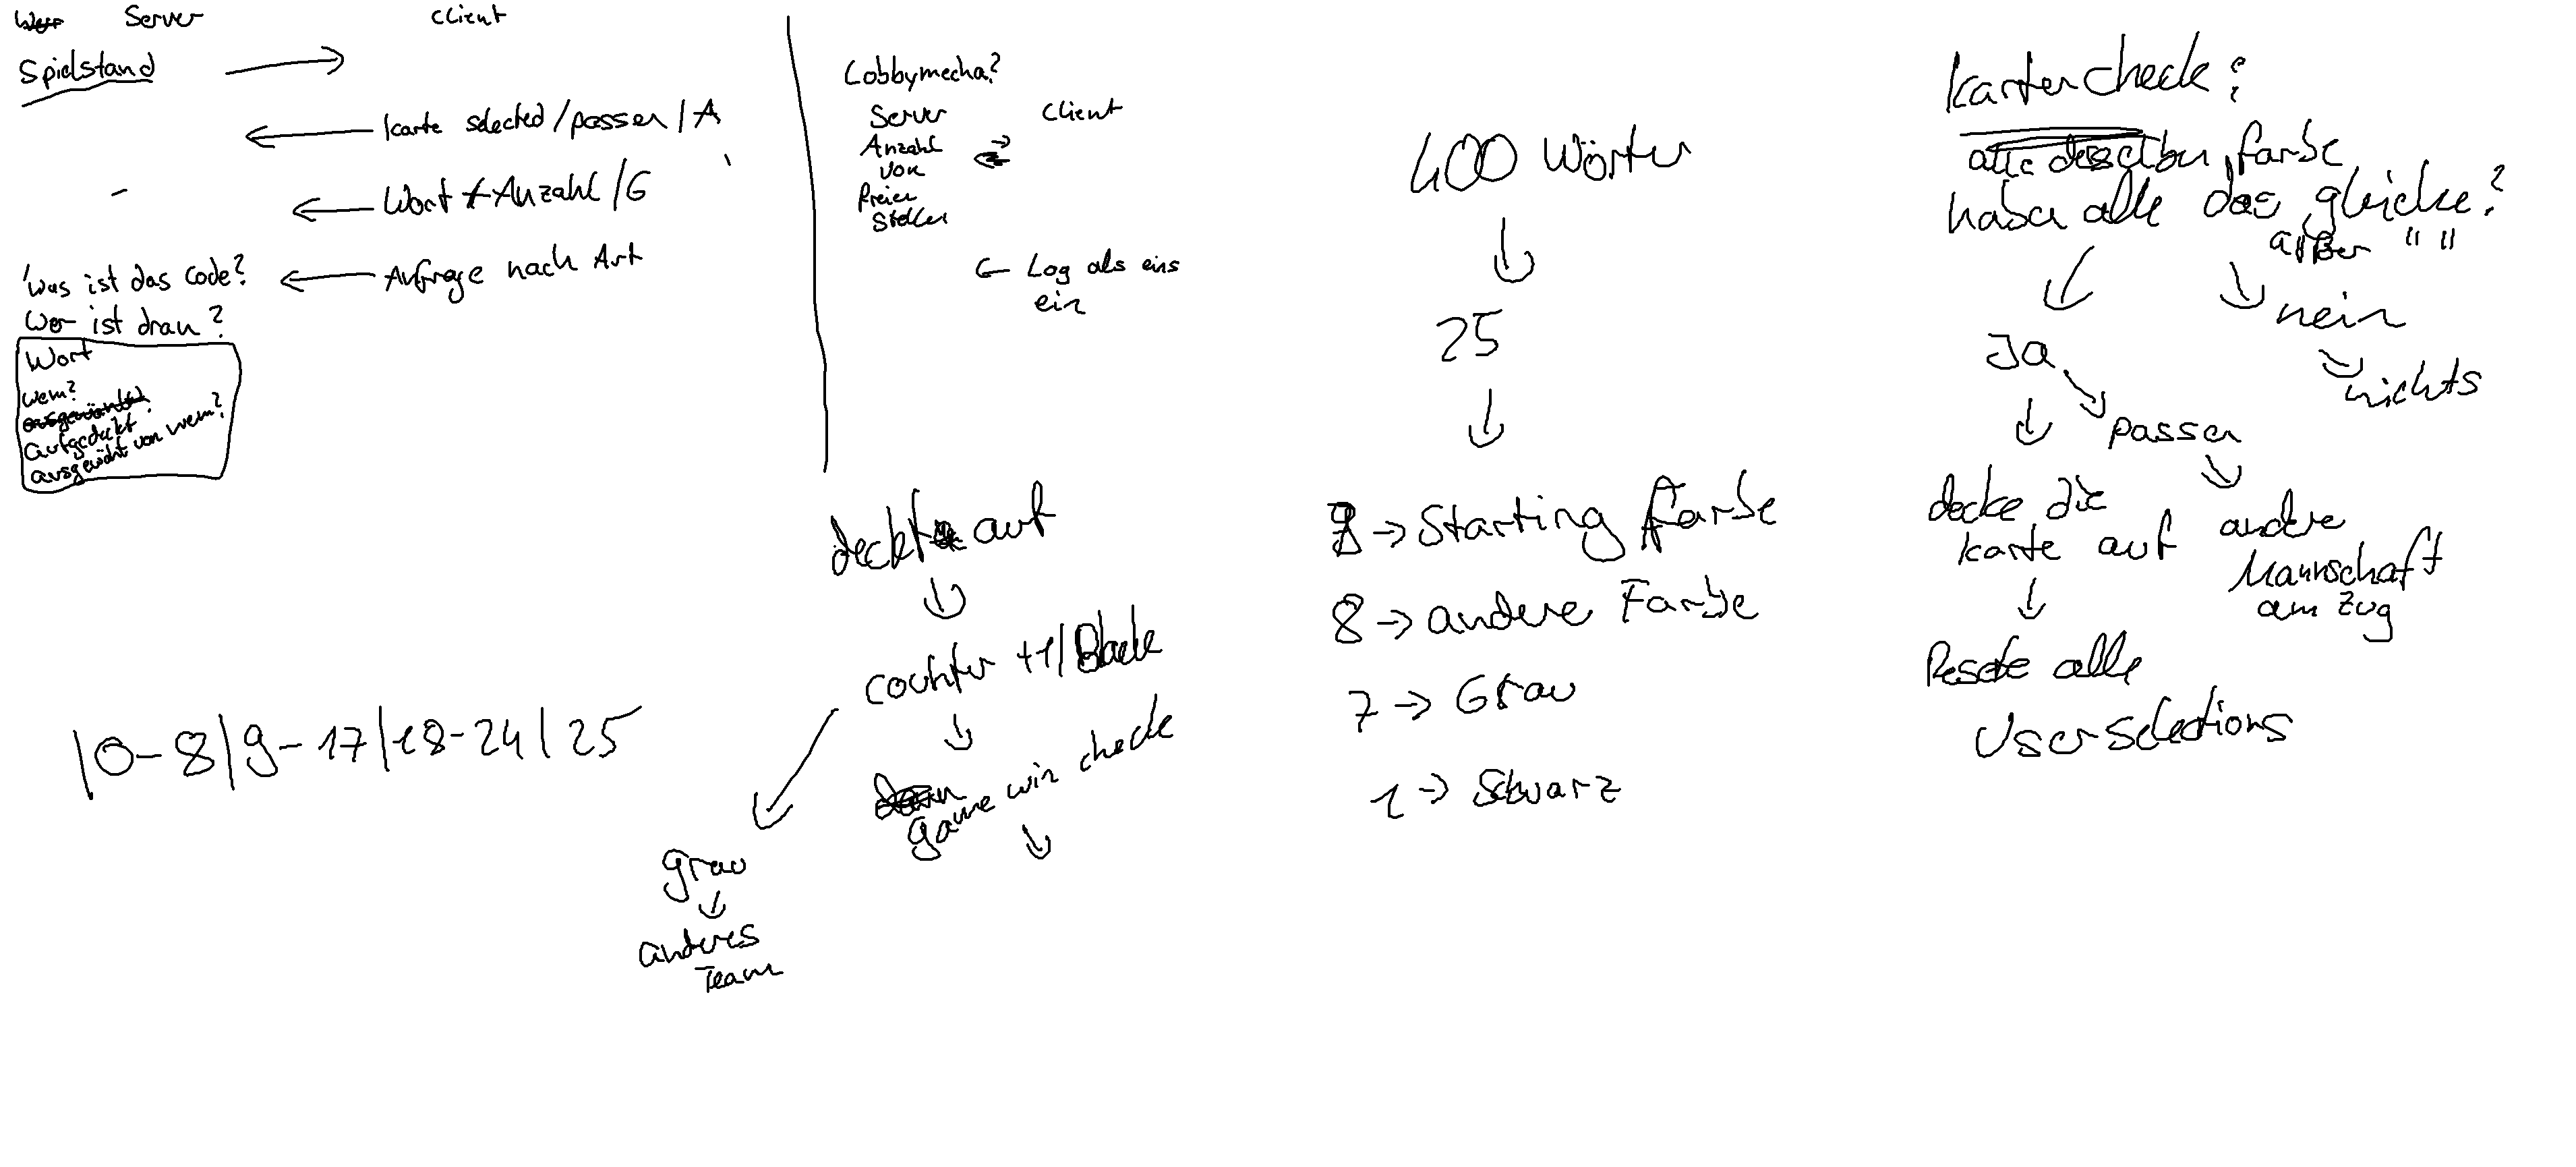 Server Client
Spielstand
Karte selected/passen/A
Wort + Anzahl/G
Was ist das Code? Anfrage nach Art
Wer ist dran?
Wort
wem?
aufgedeckt
von wem?
Lobbymecha?
Server Client
Anzahl
von
freien
Stellen
Log als eins
ein
deckt auf
counter ++1/Black
game win check
grau
anderes
Team
|0-8|9-17|18-24|25
400 Wörter
25
9 → Starting Farbe
8 → andere Farbe
7 → Grau
1 → Schwarz
Karten check:
alle desselben Farbe
haben alle das gleiche?
außer " "
Ja nein
nichts
passen
decke die
Karte auf
andere
Mannschaft
am Zug
Resete alle
Userselections